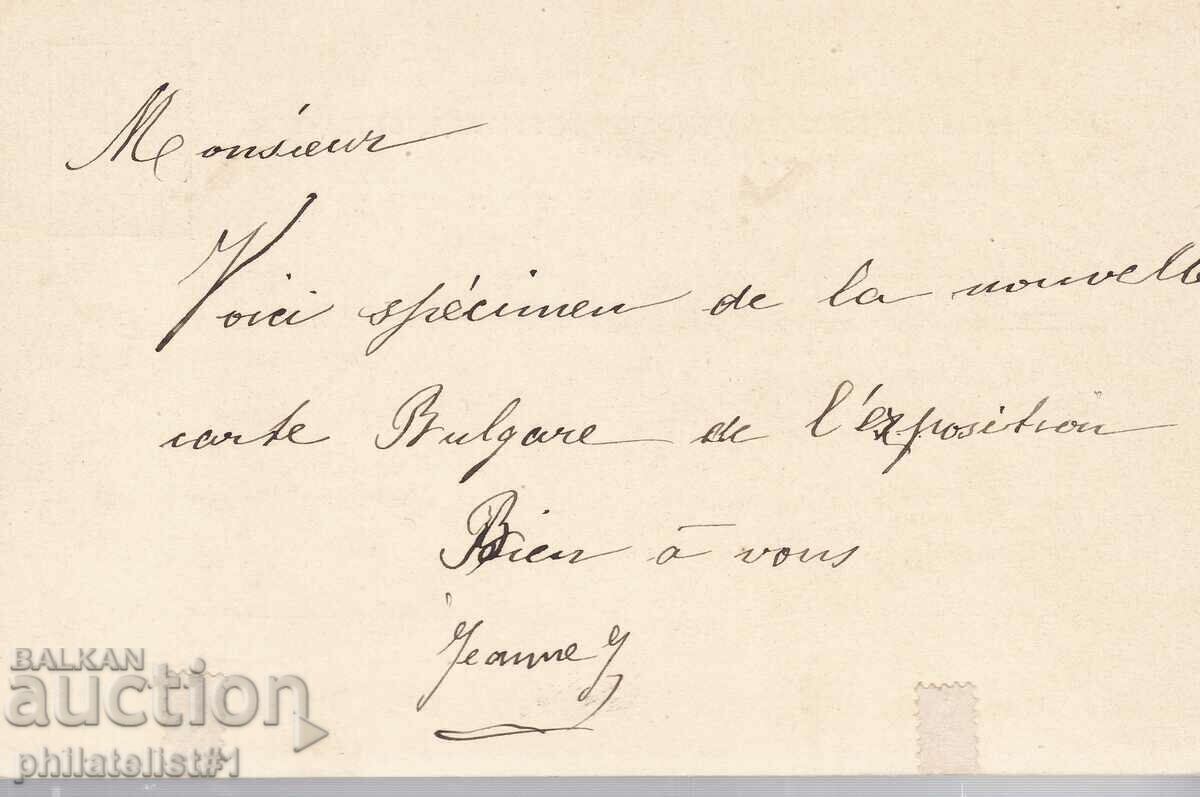 Monsieur
Voici spécimen de la nouvelle
carte Bulgare de l'exposition
Bien à vous
Jeanne J
BALKAN
auction
philatelist#1